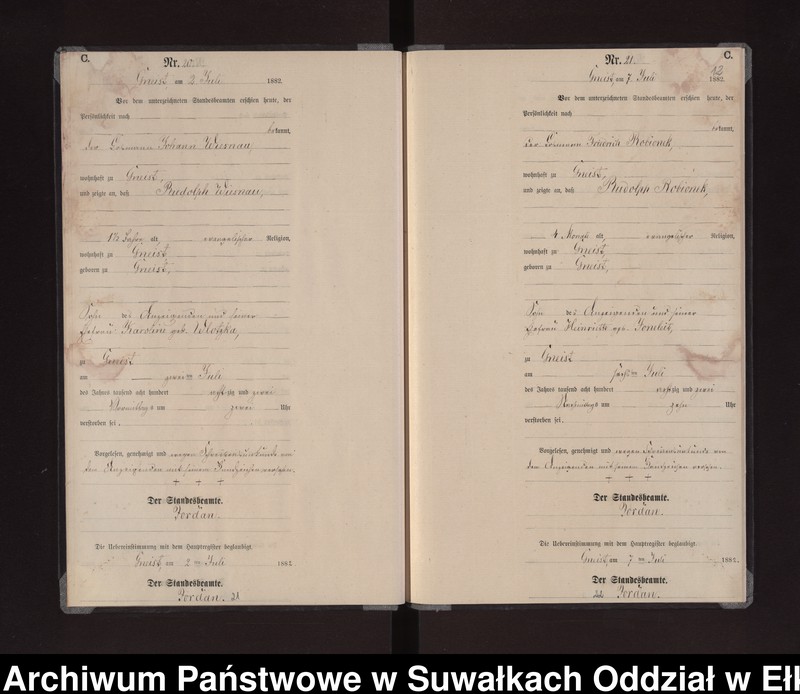 C.
Nr. 20.
Gneist am 2 Juli 1882.
Vor dem unterzeichneten Standesbeamten erschien heute, der
Persönlichkeit nach
bekannt,
der Losmann Johann
wohnhaft zu Gneist,
und zeigte an, daß Rudolph
1 1/2 Jahre alt, evangelischer Religion,
wohnhaft zu Gneist
geboren zu Gneist,
Sohn des Anzeigenden und seiner
Ehefrau Karoline geb. Wlotzka,
zu Gneist
am zwei ten Juli
des Jahres tausend acht hundert achtzig und zwei
Vormittags um zwei Uhr
verstorben sei.
Vorgelesen, genehmigt und wegen Schreibensunkunde von
dem Anzeigenden mit seinem Handzeichen versehen.
+ + +
Der Standesbeamte.
Jordan.
Die Uebereinstimmung mit dem Hauptregister beglaubigt.
Gneist, am 2 ten Juli 1882.
Der Standesbeamte.
Jordan. 21
C.
12
Nr. 21.
Gneist, am 7 Juli 1882.
Vor dem unterzeichneten Standesbeamten erschien heute, der
Persönlichkeit nach
bekannt,
der Losmann Friedrich
wohnhaft zu Gneist,
und zeigte an, daß Rudolph
4 Monate alt, evangelischer Religion,
wohnhaft zu Gneist,
geboren zu Gneist,
Sohn des Anzeigenden und seiner
Ehefrau Heinriette geb.
zu Gneist
am ten Juli
des Jahres tausend acht hundert achtzig und zwei
Nachmittags um zehn Uhr
verstorben sei.
Vorgelesen, genehmigt und wegen Schreibensunkunde von
dem Anzeigenden mit seinem Handzeichen versehen.
+ + +
Der Standesbeamte.
Jordan.
Die Uebereinstimmung mit dem Hauptregister beglaubigt.
Gneist, am 7 ten Juli 1882.
Der Standesbeamte.
22 Jordan.
Archiwum Państwowe w Suwałkach Oddział w Eł